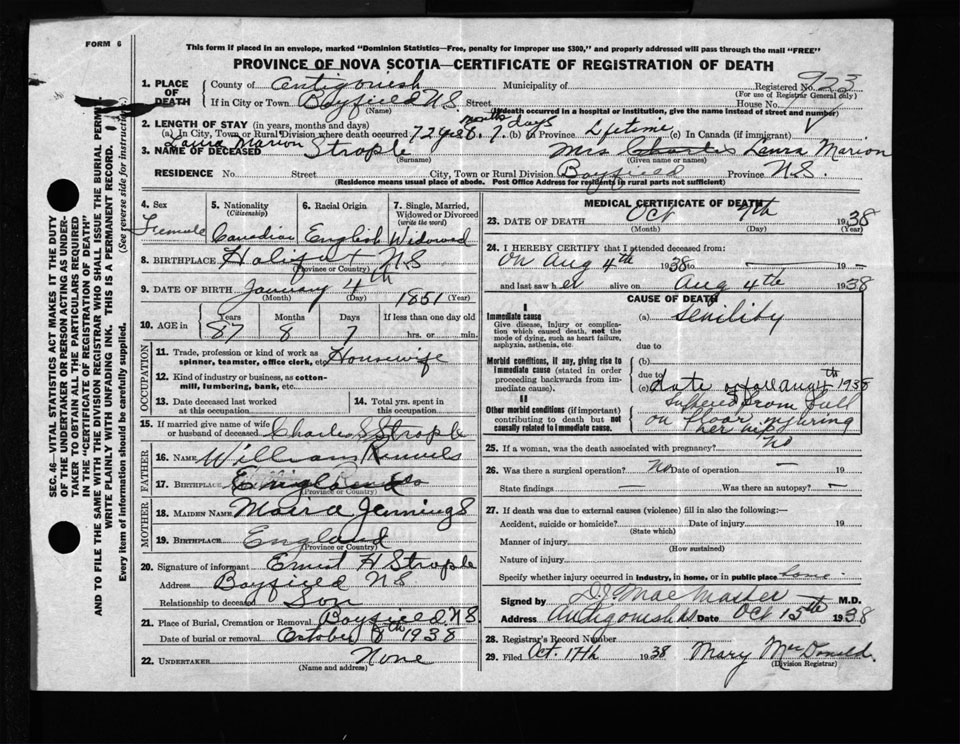 FORM 6
This form if placed in an envelope, marked "Dominion Statistics—Free, penalty for improper use $300," and properly addressed will pass through the mail "FREE"
PROVINCE OF NOVA SCOTIA—CERTIFICATE OF REGISTRATION OF DEATH
1. PLACE OF DEATH County of Antigonish Municipality of Registered No. 923
(For use of Registrar General only)
If in City or Town Bayfield N.S. Street House No.
(If death occurred in a hospital or institution, give the name instead of street and number)
2. LENGTH OF STAY (in years, months and days)
(a) In City, Town or Rural Division where death occurred 72 yrs 6 months 7 days (b) in Province Lifetime (c) In Canada (if immigrant)
Laura Marion
3. NAME OF DECEASED Strople Mrs Charles Laura Marion
(Surname) (Given name or names)
RESIDENCE No. Street City, Town or Rural Division Bayfield Province N.S.
(Residence means usual place of abode. Post Office Address for residents in rural parts not sufficient)
4. Sex Female
5. Nationality (Citizenship) Canadian
6. Racial Origin English
7. Single, Married, Widowed or Divorced (write the word) Widowed
8. BIRTHPLACE Halifax N S
(Province or Country)
9. DATE OF BIRTH January 4th 1851
(Month) (Day) (Year)
10. AGE in Years Months Days If less than one day old
87 8 7 hrs. or min.
OCCUPATION
11. Trade, profession or kind of work as spinner, teamster, office clerk, etc. Housewife
12. Kind of industry or business, as cotton-mill, lumbering, bank, etc.
13. Date deceased last worked at this occupation
14. Total yrs. spent in this occupation
15. If married give name of wife or husband of deceased Charles S Strople
FATHER
16. NAME William
17. BIRTHPLACE England
(Province or Country)
MOTHER
18. MAIDEN NAME Jennings
19. BIRTHPLACE England
(Province or Country)
20. Signature of informant Ernest H Strople
Address Bayfield N S
Relationship to deceased Son
21. Place of Burial, Cremation or Removal Bayfield N S
Date of burial or removal October 8th 1938
22. UNDERTAKER None
(Name and address)
MEDICAL CERTIFICATE OF DEATH
23. DATE OF DEATH Oct 7th 1938
(Month) (Day) (Year)
24. I HEREBY CERTIFY that I attended deceased from:
on Aug 4th 1938 to — 19 —
and last saw her alive on Aug 4th 1938
CAUSE OF DEATH
I
Immediate cause
Give disease, injury or complication which caused death, not the mode of dying, such as heart failure, asphyxia, asthenia, etc.
(a) Senility
due to
Morbid conditions, if any, giving rise to immediate cause (stated in order proceeding backwards from immediate cause).
(b)
due to
(c) date of fall aug 4th 1938
II
Other morbid conditions (if important) contributing to death but not causally related to immediate cause.
Suffered from fall
on floor injuring
her hip
25. If a woman, was the death associated with pregnancy? no
26. Was there a surgical operation? No Date of operation — 19
State findings — Was there an autopsy? —
27. If death was due to external causes (violence) fill in also the following:—
Accident, suicide or homicide? Date of injury 19
(State which)
Manner of injury
(How sustained)
Nature of injury
Specify whether injury occurred in industry, in home, or in public place home
Signed by D J MacMaster M.D.
Address Antigonish NS Date Oct 15th 1938
28. Registrar's Record Number
29. Filed Oct. 17th 1938 Mary MacDonald.
(Division Registrar)
SEC. 46—VITAL STATISTICS ACT MAKES IT THE DUTY
OF THE UNDERTAKER OR PERSON ACTING AS UNDER-
TAKER TO OBTAIN ALL THE PARTICULARS REQUIRED
IN THE "CERTIFICATE OF REGISTRATION OF DEATH"
AND TO FILE THE SAME WITH THE DIVISION REGISTRAR WHO SHALL ISSUE THE BURIAL PERM
WRITE PLAINLY WITH UNFADING INK. THIS IS A PERMANENT RECORD.
Every item of information should be carefully supplied. (See reverse side for instructions.)